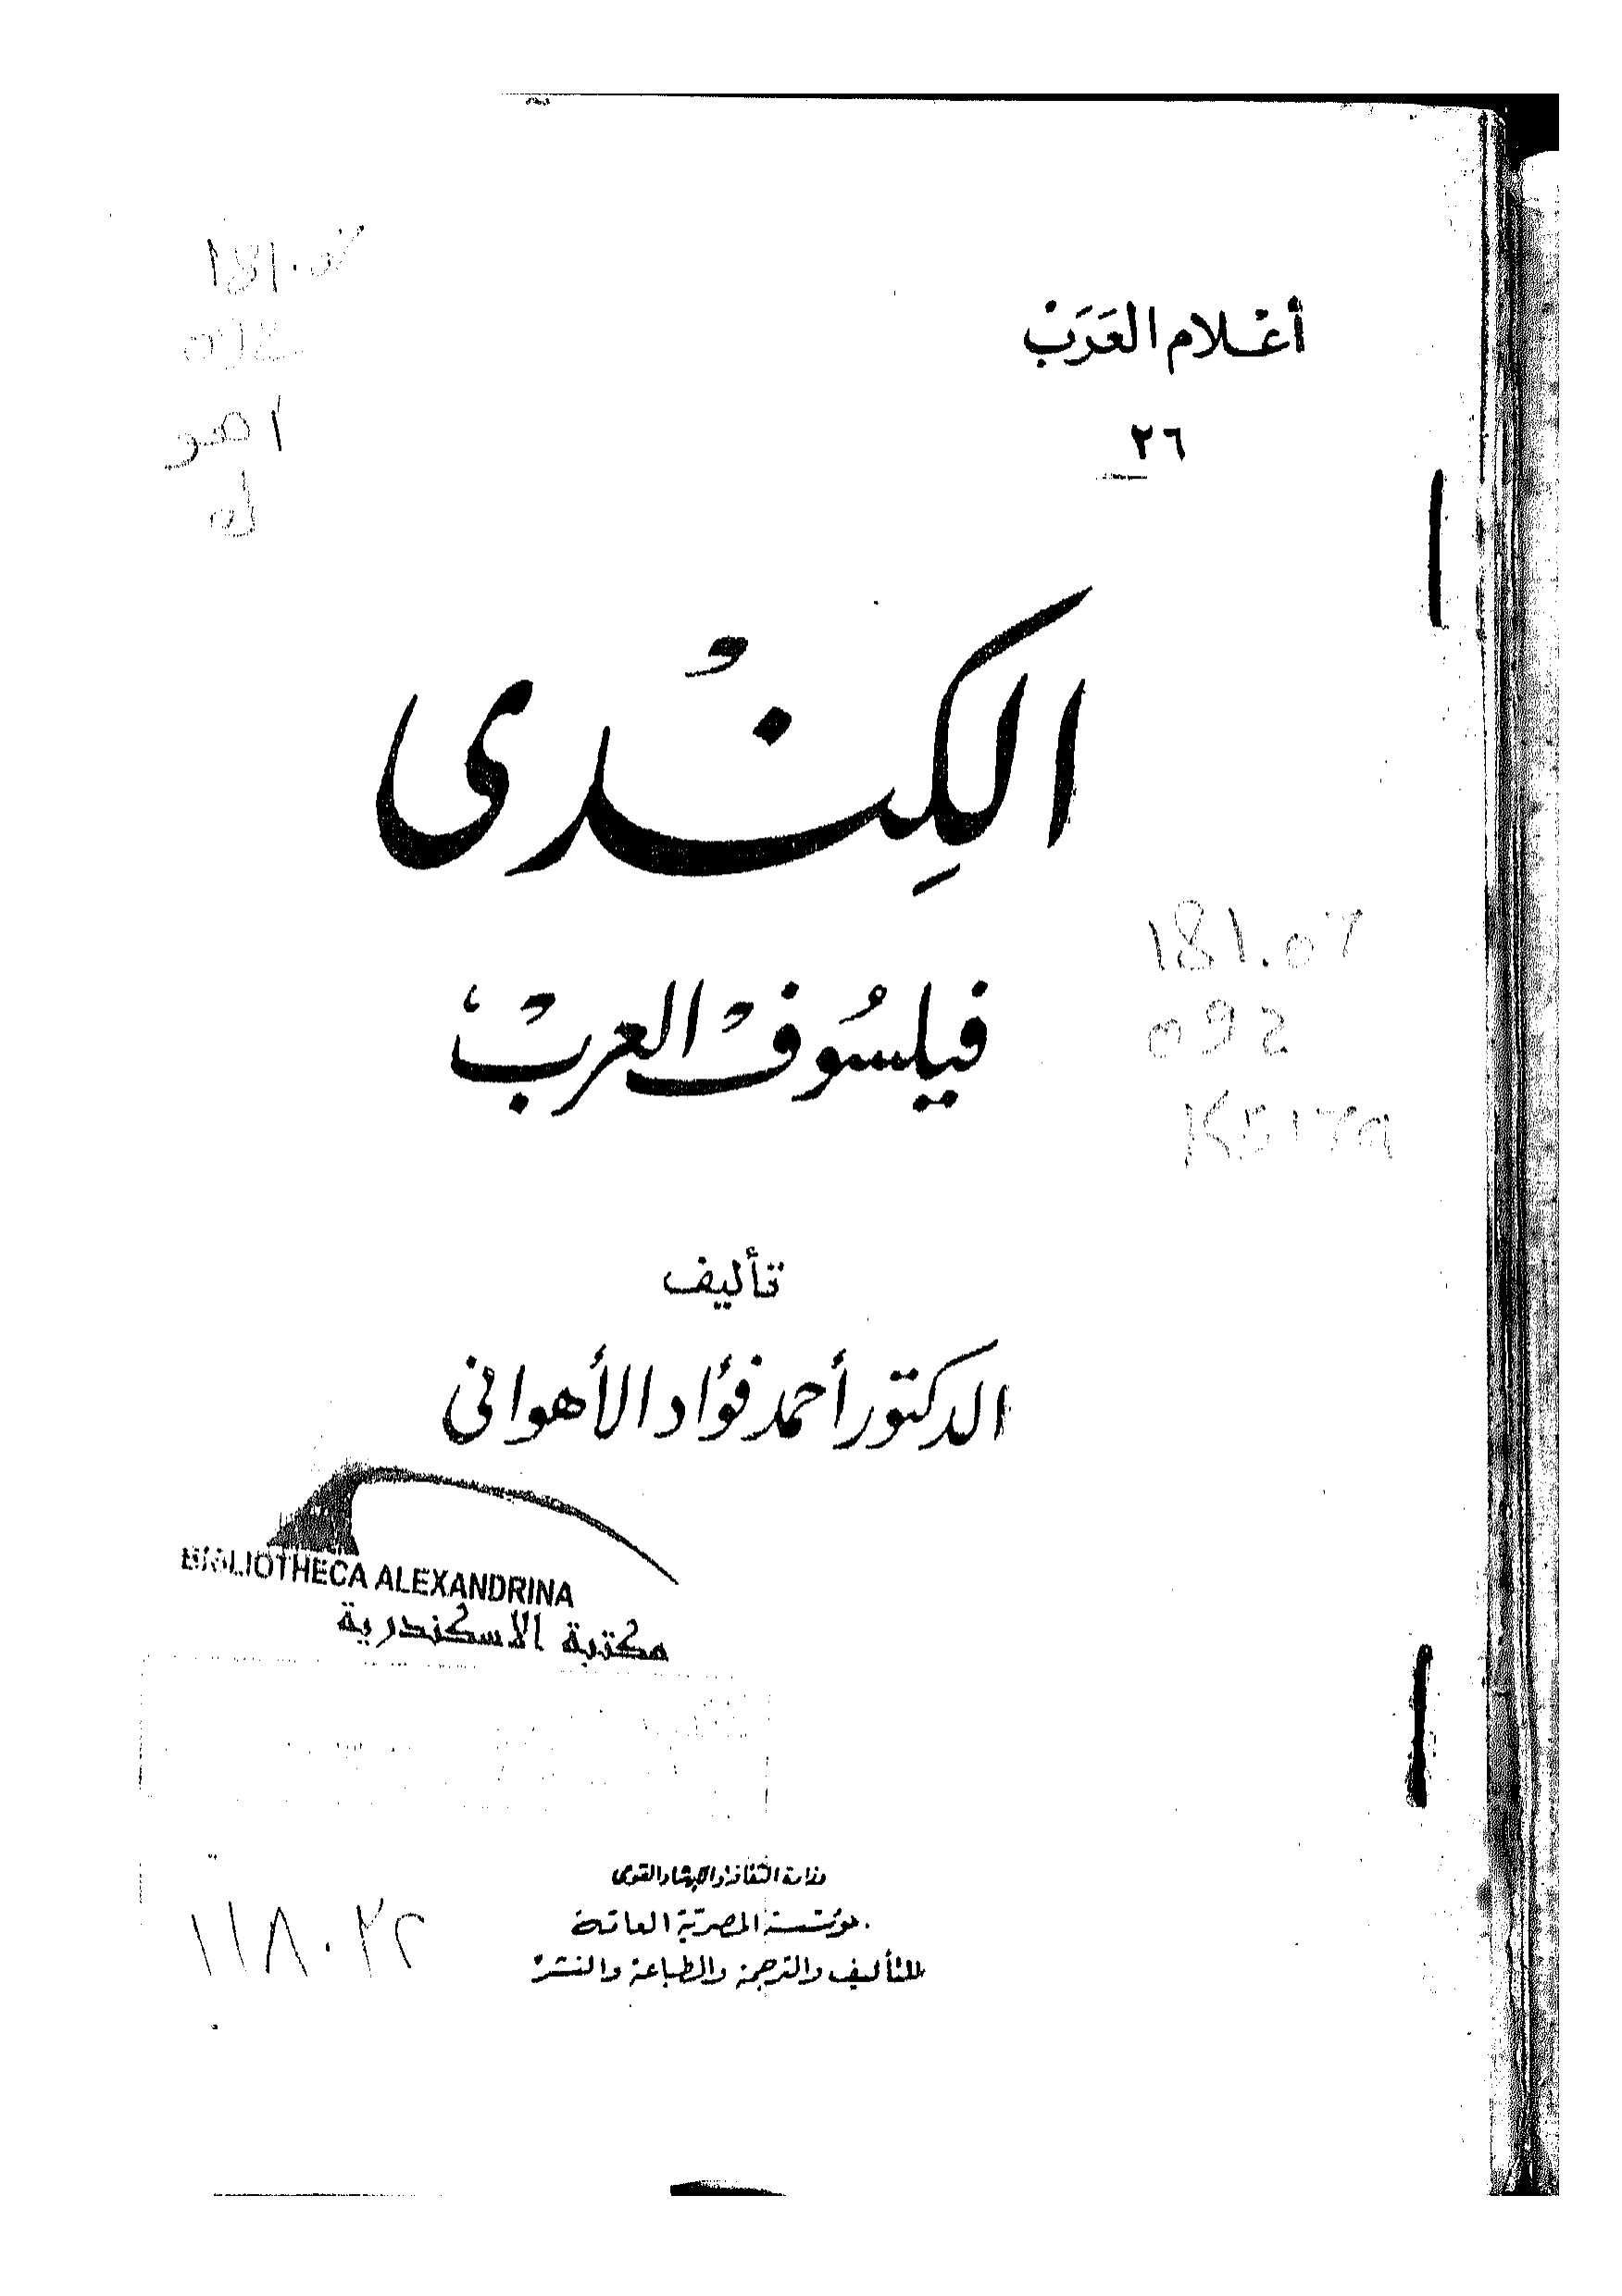 أعلام العرب
٢٦
الكندى
فيلسوف العرب
181.07
092
تأليف
الدكتور أحمد فؤاد الأهوانى
BIBLIOTHECA ALEXANDRINA
مكتبة الاسكندرية
وزارة الثقافة والإرشاد القومى
المؤسسة المصرية العامة
للتأليف والترجمة والطباعة والنشر